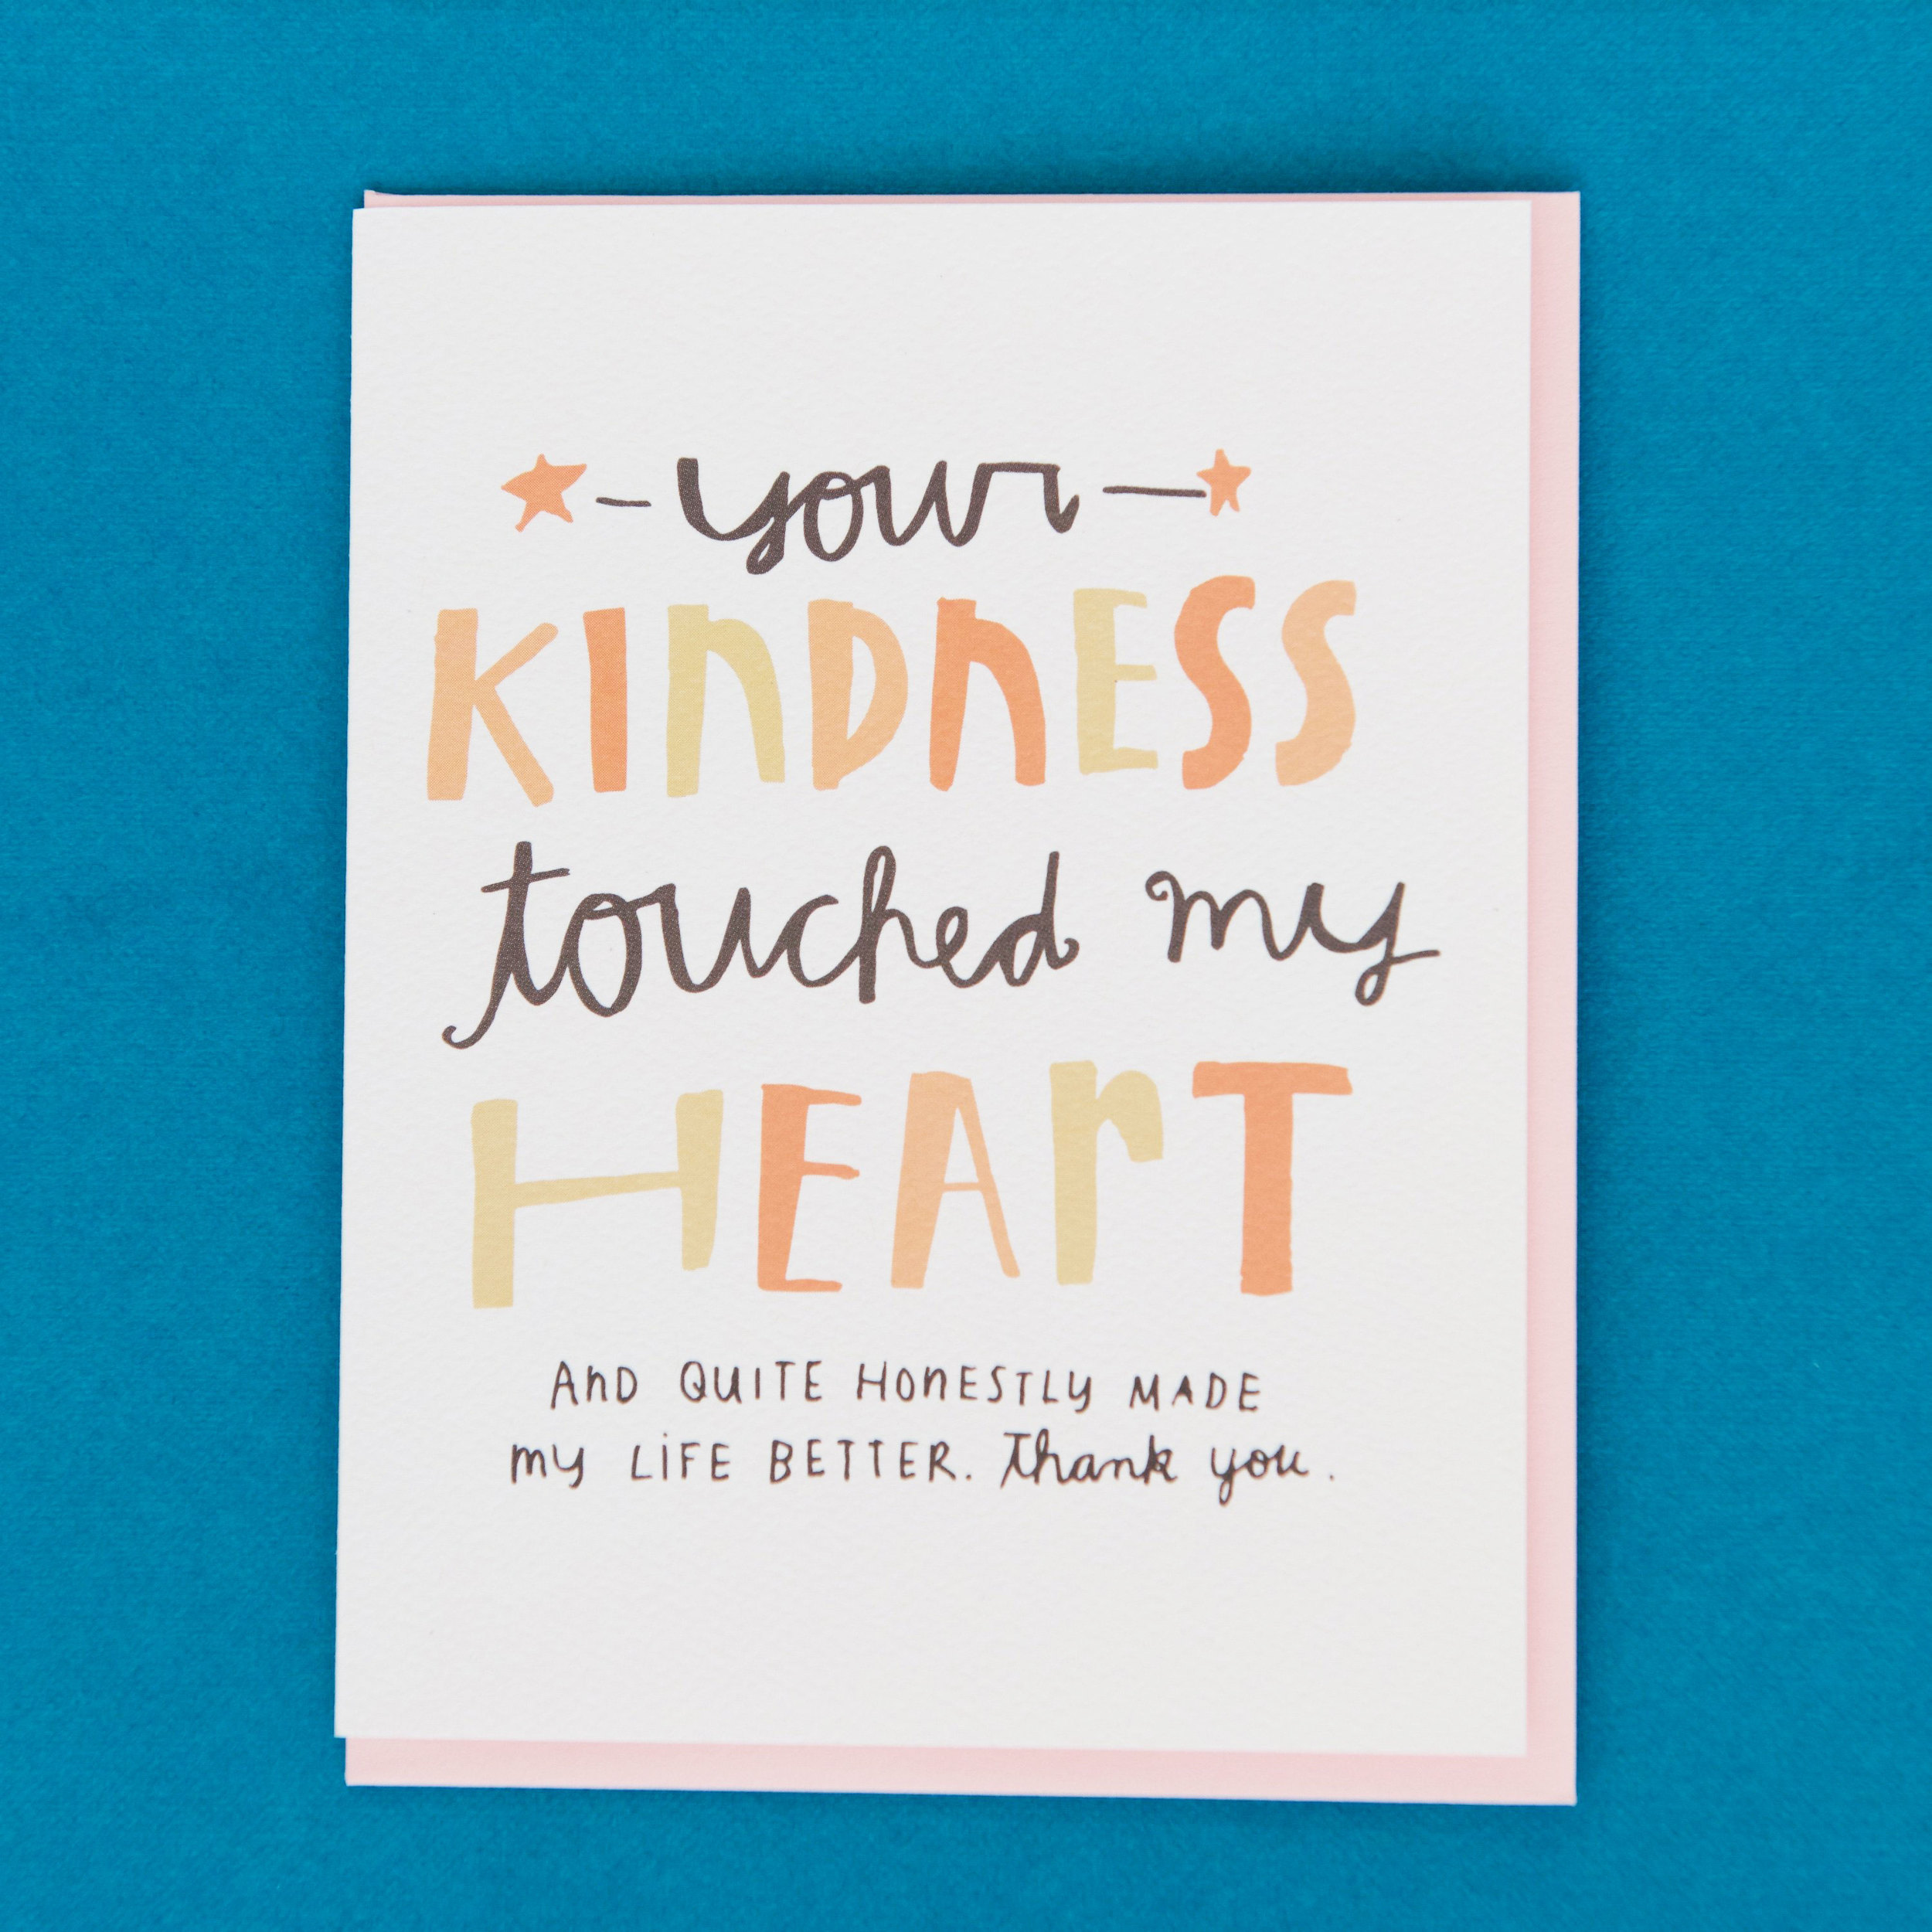 your
KInDnESS
touched my
HEArT
AnD QUITE HOnESTLy MADE
my LiFE BETTER. Thank you.